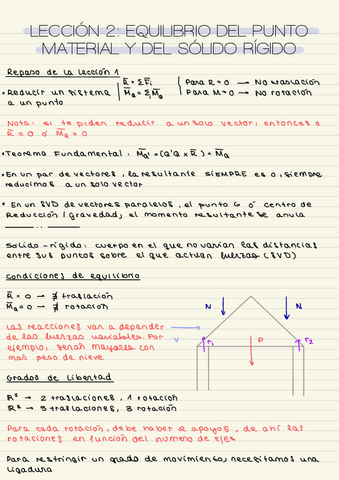 LECCIÓN 2: EQUILIBRIO DEL PUNTO
MATERIAL Y DEL SÓLIDO RÍGIDO
Repaso de la lección 1
• Reducir un sistema
a un punto
R̄ = Σ F̄i
M̄a = Σ M̄a
Para R = 0 → No traslación
Para M = 0 → No rotación
Nota: si te piden reducir a un solo vector, entonces o
R̄ = 0 o M̄a = 0
• Teorema Fundamental: M̄a' = (Q'Q x R̄) + M̄a
• En un par de vectores, la resultante SIEMPRE es 0, siempre
reducimos a un solo vector
• En un SVD de vectores paralelos, el punto G o centro de
Reducción / gravedad, el momento resultante se anula
Solido-rígido: cuerpo en el que no varían las distancias
entre sus puntos sobre el que actúan fuerzas (SVD)
Condiciones de equilibrio
R̄ = 0 → ∄ traslación
M̄a = 0 → ∄ rotación
Las reacciones van a depender
de las fuerzas variables. Por
ejemplo, serán mayores con
mas peso de nieve
N
N
V
r1
P
r2
Grados de libertad
R² → 2 traslaciones, 1 rotación
R³ → 3 traslaciones, 3 rotación
Para cada rotación, debe haber 2 apoyos, de ahí las
rotaciones en función del número de ejes
Para restringir un grado de movimiento, necesitamos una
ligadura